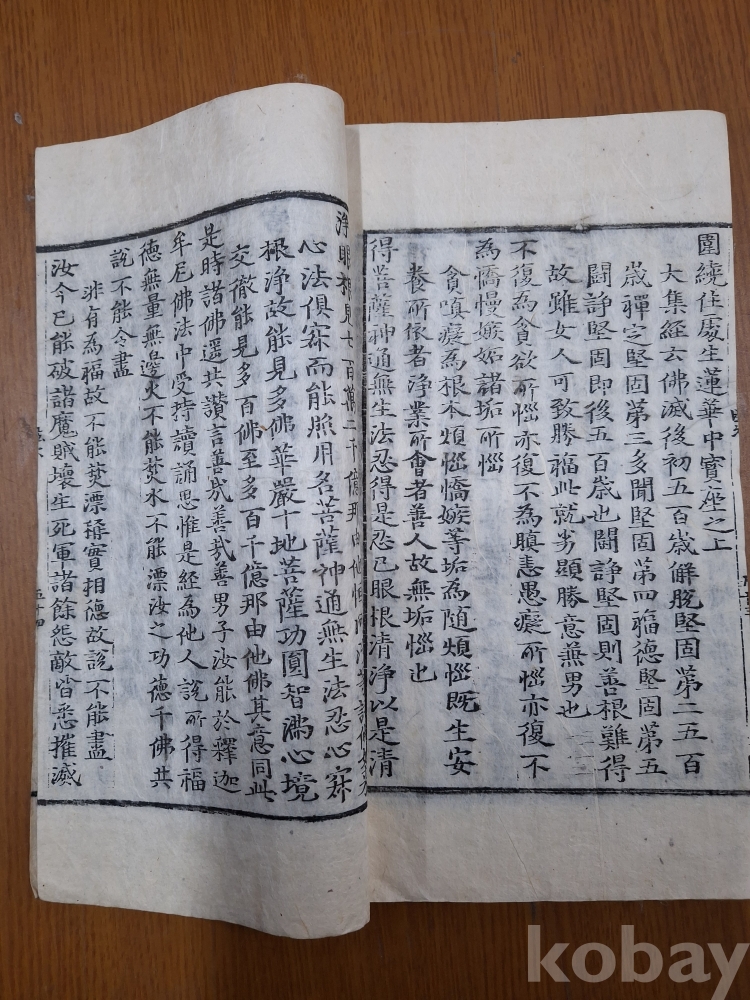 圍繞住處生蓮華中寶座之上
大集經云佛滅後初五百歲解脫堅固第二五百
歲禪定堅固第三多聞堅固第四福德堅固第五
鬪諍堅固即後五百歲也鬪諍堅固則善根難得
故雖女人可致勝福此就劣顯勝意兼男也
不復為貪欲所惱亦復不為瞋恚愚癡所惱亦復不
為憍慢嫉妬諸垢所惱
貪嗔癡為根本煩惱憍嫉等垢為随煩惱旣生安
養所依者淨業所會者善人故無垢惱也
得菩薩神通無生法忍得是忍已眼根清淨以是清
淨眼根見七百萬二千億那由他恒河沙等諸佛如来
心法俱寂而能照用名菩薩神通無生法忍心寂
根淨故能見多佛華嚴十地菩薩功圓智滿心境
交徹能見多百佛至多百千億那由他佛其意同此
是時諸佛遥共讃言善㢤善㢤善男子汝能於釋迦
牟尼佛法中受持讀誦思惟是經為他人說所得福
德無量無邊火不能焚水不能漂汝之功德千佛共
說不能令盡
非有為福故不能焚漂稱實相德故說不能盡
汝今已能破諸魔賊壞生死軍諸餘怨敵皆悉摧滅
五十四
kobay